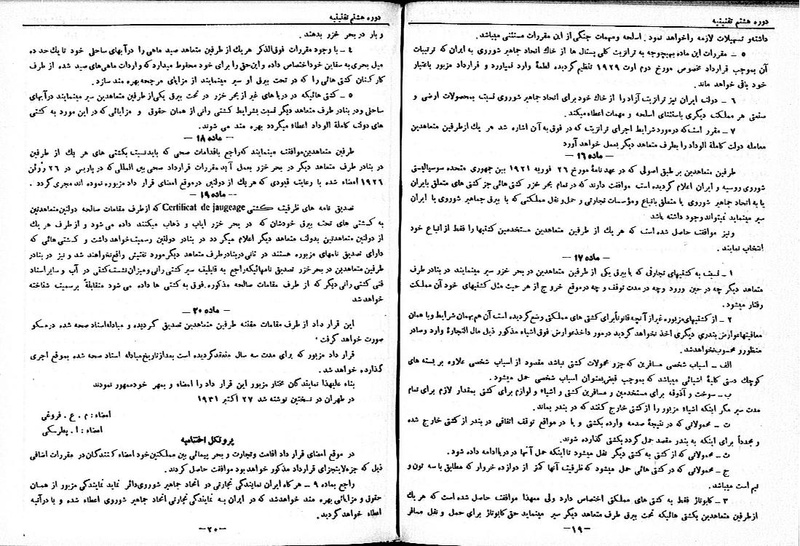 دوره هشتم تقنینیه
داشته و تسهیلات لازمه را خواهد نمود. اسلحه و مهمات جنگی از این مقررات مستثنی میباشد
۵ – مقررات این ماده بهیچوجه به ترانزیت کلی پستال ها از خاك اتحاد جماهیر شوروی به ایران که ترتیبات
آن بموجب قرارداد مخصوص مورخ دوم اوت ۱۹۲۹ تنظیم گردیده لطمهٔ وارد نمیاورد و قرارداد مزبور باعتبار
خود باقی خواهد ماند.
۶ – دولت ایران نیز ترانزیت آزاد را از خاك خود برای اتحاد جماهیر شوروی نسبت بمحصولات ارضی و
صنعتی هر مملکت دیگری باستثنای اسلحه و مهمات اعطاء میکند.
۷ – مقرر است که در مورد شرایط اجرای ترانزیت که در فوق به آن اشاره شد هر یك از طرفین متعاهدین
معامله دولت کاملة الوداد را بطرف متعاهد دیگر بعمل خواهد آورد
– ماده ۱۶ –
طرفین متعاهدین بر طبق اصولی که در عهدنامهٔ مورخ ۲۶ فوریه ۱۹۲۱ بین جمهوری متحده سوسیالیستی
شوروی روسیه و ایران اعلام گردیده است موافقت دارند که در تمام بحر خزر کشتی هائی جز کشتی های متعلق بایران
یا به اتحاد جماهیر شوروی یا متعلق باتباع و مؤسسات تجارتی و حمل و نقل مملکتی که با بیرق جماهیر شوروی یا ایران
سیر مینماید نمیتواند وجود داشته باشد
و نیز موافقت حاصل شده است که هر یك از طرفین متعاهدین مستخدمین کشتیها را فقط از اتباع خود
انتخاب نمایند.
– ماده ۱۷ –
۱ – نسبت به کشتیهای تجارتی که با بیرق یکی از طرفین متعاهدین در بحر خزر سیر مینمایند در بنادر طرف
متعاهد دیگر چه در حین ورود و چه در مدت توقف و چه در موقع خروج از هر حیث مثل کشتیهای خود آن مملکت
رفتار میشود.
۲ – از کشتیهای مزبوره غیر از آنچه قانوناً برای کشتی های مملکتی وضع گردیده است آن هم بهمان شرایط و با همان
معافیتها عوارض بندری دیگری اخذ نخواهد گردید در مورد اخذ عوارض فوق اشیاء مذکور ذیل مال التجارهٔ وارد و صادر
منظور و محسوب نخواهد شد.
الف – اسباب شخصی مسافرین که جزو محمولات کشتی نباشد مقصود از اسباب شخصی علاوه بر بسته های
کوچك دستی کلیهٔ اشیائی میباشد که بموجب قبض بعنوان اسباب شخصی حمل میشود.
ب – سوخت و آذوقه برای مستخدمین و مسافرین کشتی و اشیاء و لوازم برای کشتی بمقدار لازم برای تمام
مدت سیر مگر اینکه اشیاء مزبور را از کشتی خارج کنند که در بندر بماند.
ت – محمولاتی که در نتیجهٔ صدمه وارده بکشتی و یا در مواقع توقف اتفاقی در بندر از کشتی خارج شده
و مجدداً برای اینکه به بندر مقصد حمل گردد بکشتی گذارده شوند.
ث – محمولاتی که از کشتی به کشتی دیگر نقل میشود تا اینکه حمل آنها در دریا ادامه داده شود.
ج – محمولاتی که در کشتی هائی حمل میشود که ظرفیت آنها کمتر از دوازده خروار که مطابق با سه تون و
نیم است میباشد.
۳ – کابوتاژ فقط به کشتی های مملکتی اختصاص دارد ولی معهذا موافقت حاصل شده است که هر یك
از طرفین متعاهدین بکشتی هائیکه تحت بیرق طرف متعاهد دیگر سیر مینماید حق کابوتاژ برای حمل و نقل مسافر
–۱۹–
دوره هشتم تقنینیه
و بار در بحر خزر بدهند.
۴ – با وجود مقررات فوق الذکر هر یك از طرفین متعاهد صید ماهی را در آبهای ساحلی خود تا یك حد ده
میل بحری به سفاین خود اختصاص داده و این حق را برای خود محفوظ میدارد که واردات ماهی های صید شده از طرف
کارکنان کشتی هائی را که در تحت بیرق او سیر مینمایند از مزایای مرجحه بهره مند سازد.
۵ – کشتی هائیکه در دریاهای غیر از بحر خزر در تحت بیرق یکی از طرفین متعاهدین سیر مینمایند در آبهای
ساحلی و در بنادر طرف متعاهد دیگر نسبت بشرایط کشتی رانی از همان حقوق و مزایائی که در این مورد به کشتی
های دولت کاملة الوداد اعطاء میگردد بهره مند می شوند.
– ماده ۱۸ –
طرفین متعاهدین موافقت مینمایند که راجع باقدامات صحی که باید نسبت بکشتی های هر یك از طرفین
در بنادر طرف متعاهد دیگر در بحر خزر بعمل آید مقررات قرارداد صحی بین المللی که در پاریس در ۲۶ ژوئن
۱۹۲۶ امضاء شده با رعایت قیودی که هر یك از دولتین در موقع امضای قرار داد مزبوره نموده اند مجری گردد.
– ماده ۱۹ –
تصدیق نامه های ظرفیت کشتی Certificat de jaugeage که از طرف مقامات صالحه دولتین متعاهدتین
به کشتی های تحت بیرق خودشان که در بحر خزر ایاب و ذهاب میکنند داده می شود و از طرف هر یك
از دولتین متعاهدتین بدولت متعاهد دیگر اعلام میگردد در بنادر دولتین رسمیت خواهد داشت و کشتی هائی که
دارای تصدیق نامهای مزبوره هستند در ثانی در بنادر طرف متعاهد دیگر مورد تفتیش واقع نخواهند شد و نیز در بنادر
طرفین متعاهدین در بحر خزر تصدیق نامهائیکه راجع به قابلیت سیر کشتی رانی و میزان نشست کشتی در آب و سایر اسناد
فنی کشتی رانی دیگر که از طرف مقامات صالحه مذکوره فوق به کشتی ها داده می شود متقابلاً برسمیت شناخته
خواهد شد
– ماده ۲۰ –
این قرار داد از طرف مقامات مقننه طرفین متعاهدین تصدیق گردیده و مبادله اسناد صحه شده در مسکو
صورت خواهد گرفت
قرار داد مزبور که برای مدت سه سال منعقد گردیده است بعد از تاریخ مبادله اسناد صحه شده بموقع اجری
گذارده خواهد شد.
بناء علیهذا نمایندگان مختار مزبور این قرار داد را امضاء و بمهر خود ممهور نمودند
در طهران در نسختین نوشته شد ۲۷ اکتبر ۱۹۳۱
امضاء : م . ع . فروغی
امضاء : ا . پطرسکی
پروتکل اختتامیه
در موقع امضای قرار داد اقامت و تجارت و بحر پیمائی بین مملکتین خود امضاء کنندگان در مقررات اضافی
ذیل که جزء لایتجزای قرارداد مذکور خواهد بود موافقت حاصل کردند.
راجع بماده ۹ – هر گاه ایران نمایندگی تجارتی در اتحاد جماهیر شوروی دائر نماید نمایندگی مزبور از همان
حقوق و مزایائی بهره مند خواهد شد که در ایران به نمایندگی تجارتی اتحاد جماهیر شوروی اعطاء شده و یا در آتیه
اعطاء خواهد گردید.
–۲۰–